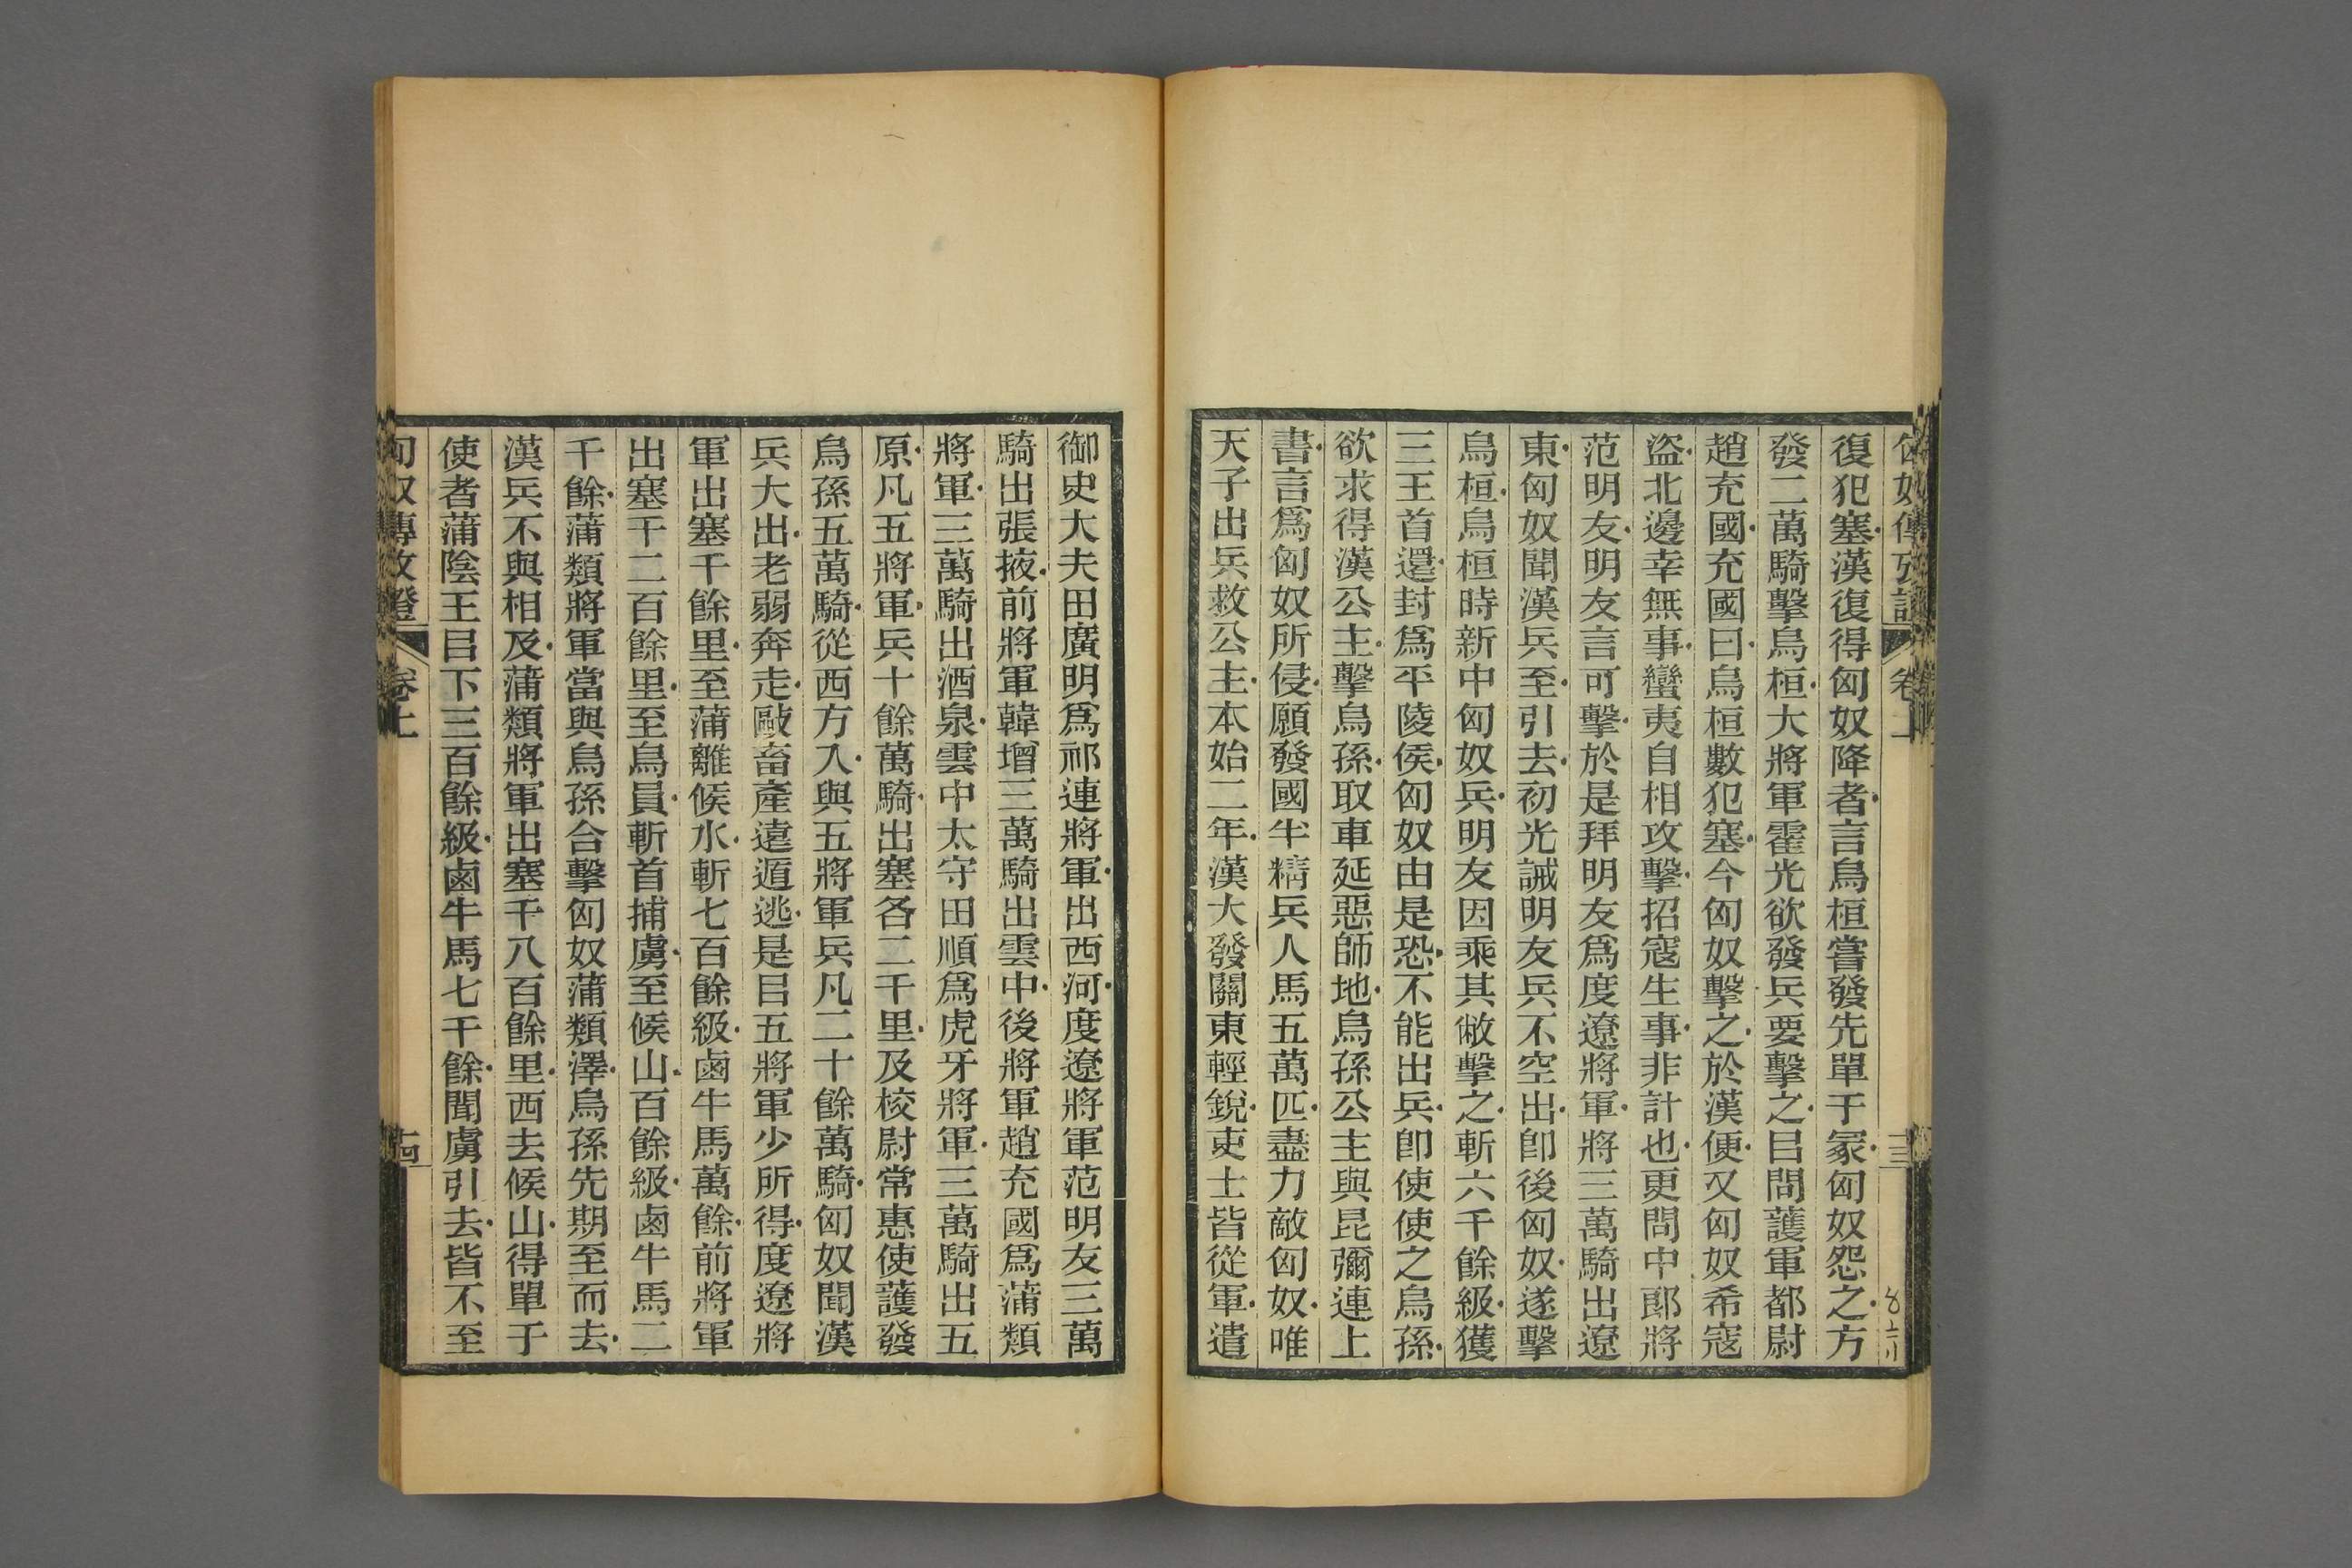 匈奴傳攷證 卷上 三
復犯塞漢復得匈奴降者言烏桓嘗發先單于冢匈奴怨之方
發二萬騎擊烏桓大將軍霍光欲發兵要擊之㠯問護軍都尉
趙充國充國曰烏桓數犯塞今匈奴擊之於漢便又匈奴希寇
盜北邊幸無事蠻夷自相攻擊招寇生事非計也更問中郎將
范明友明友言可擊於是拜明友爲度遼將軍將三萬騎出遼
東匈奴聞漢兵至引去初光誡明友兵不空出卽後匈奴遂擊
烏桓烏桓時新中匈奴兵明友因乘其敝擊之斬六千餘級獲
三王首還封爲平陵侯匈奴由是恐不能出兵卽使使之烏孫
欲求得漢公主擊烏孫取車延惡師地烏孫公主與昆彌連上
書言爲匈奴所侵願發國半精兵人馬五萬匹盡力敵匈奴唯
天子出兵救公主本始二年漢大發關東輕銳吏士皆從軍遣
御史大夫田廣明爲祁連將軍出西河度遼將軍范明友三萬
騎出張掖前將軍韓增三萬騎出雲中後將軍趙充國爲蒲類
將軍三萬騎出酒泉雲中太守田順爲虎牙將軍三萬騎出五
原凡五將軍兵十餘萬騎出塞各二千里及校尉常惠使護發
烏孫五萬騎從西方入與五將軍兵凡二十餘萬騎匈奴聞漢
兵大出老弱奔走敺畜產遠遁逃是㠯五將軍少所得度遼將
軍出塞千餘里至蒲離候水斬七百餘級鹵牛馬萬餘前將軍
出塞千二百餘里至烏員斬首捕虜至候山百餘級鹵牛馬二
千餘蒲類將軍當與烏孫合擊匈奴蒲類澤烏孫先期至而去
漢兵不與相及蒲類將軍出塞千八百餘里西去候山得單于
使者蒲陰王㠯下三百餘級鹵牛馬七千餘聞虜引去皆不至
匈奴傳攷證 卷上